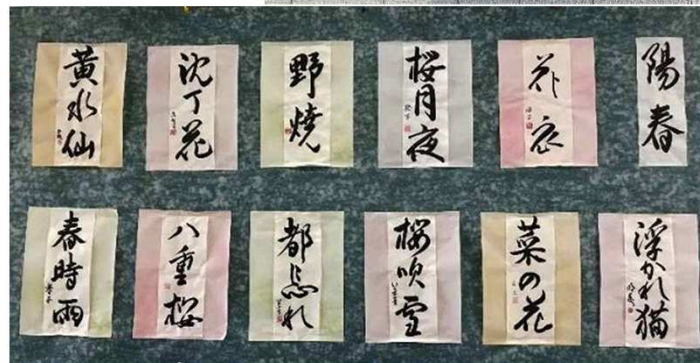 黄水仙
沈丁花
野焼
桜月夜
花衣
陽春
春時雨
八重桜
都忘れ
桜吹雪
菜の花
浮かれ猫